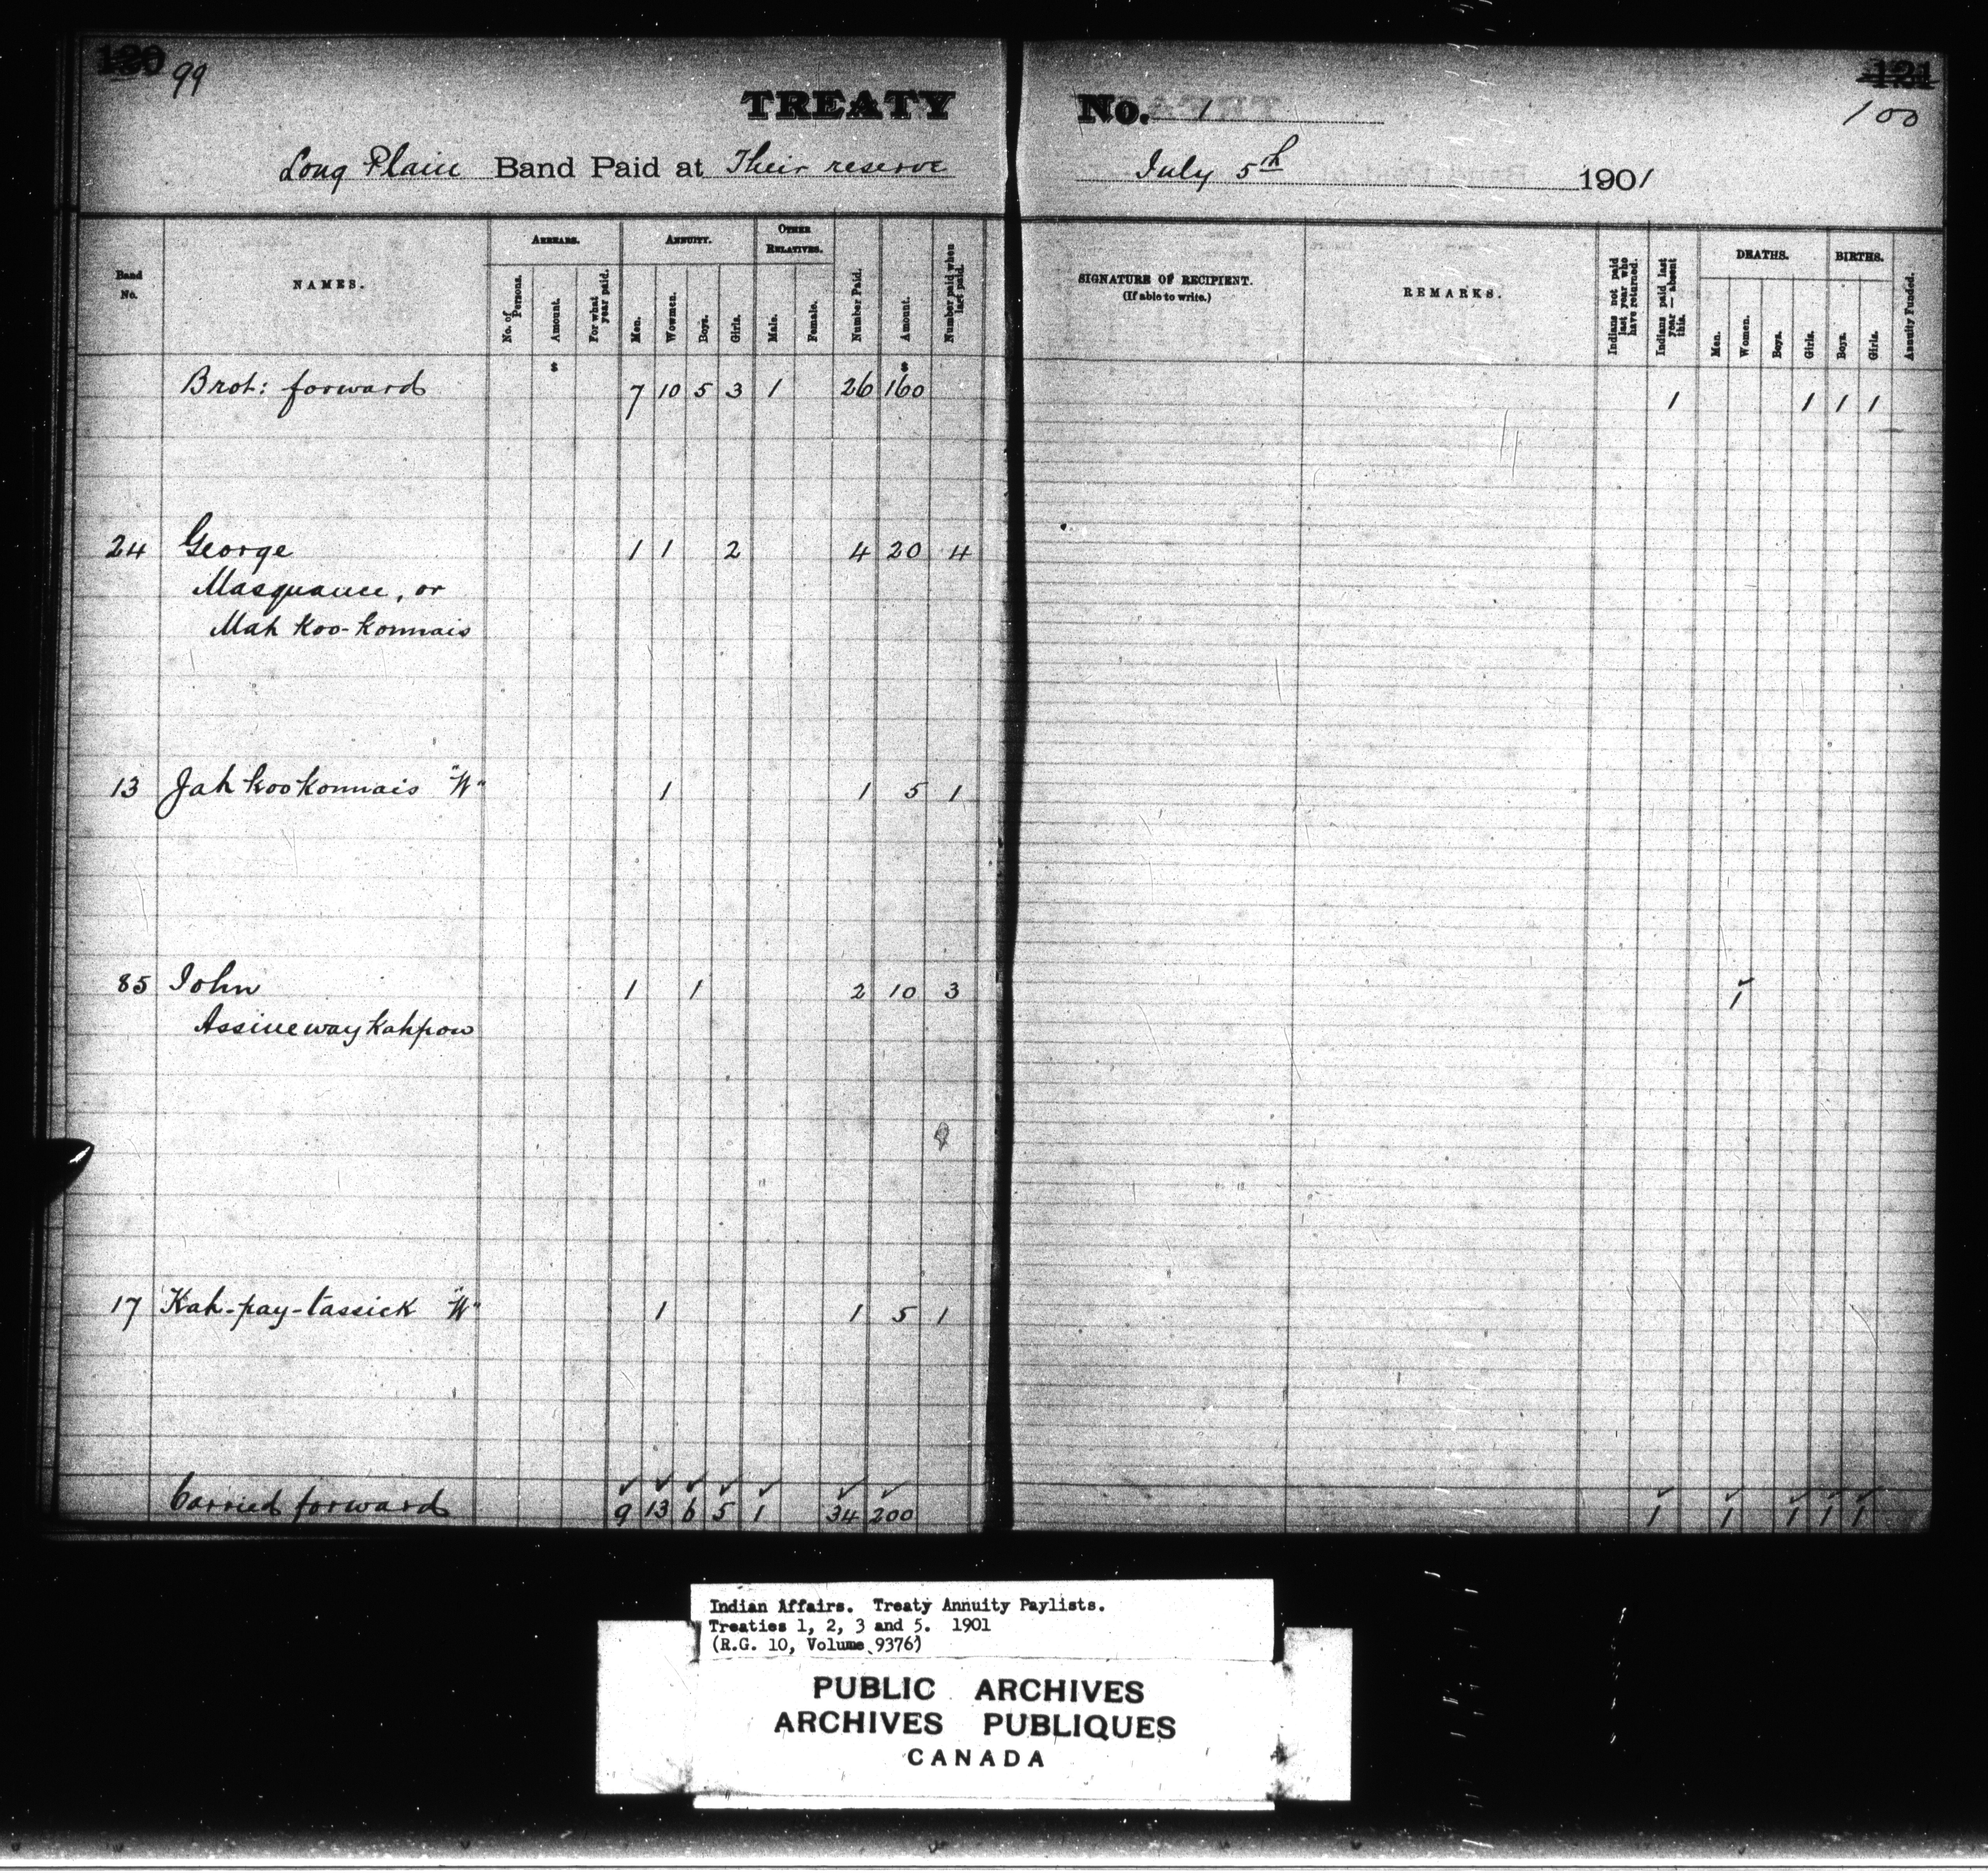 120 99
TREATY No. 1
121
100
Long Plain Band Paid at Their reserve July 5th 1901
Band No.
NAMES.
ARREARS.
No. of Persons.
Amount.
For what year paid.
ANNUITY.
Men.
Wowmen.
Boys.
Girls.
OTHER RELATIVES.
Male.
Female.
Number Paid.
Amount.
Number paid when last paid.
SIGNATURE OF RECIPIENT.
(If able to write.)
REMARKS.
Indians not paid last year who have returned.
Indians paid last year — absent this.
DEATHS.
Men.
Women.
Boys.
Girls.
BIRTHS.
Boys.
Girls.
Annuity Funded.
$ $
Brot: forward 7 10 5 3 1 26 160 1 1 1 1
24 George 1 1 2 4 20 4
Masquance, or
Mah koo-konnais
13 Jah koo konnais "W" 1 1 5 1
85 John 1 1 2 10 3 1
Assineway kahpow
17 Kah-pay-tassick "W" 1 1 5 1
Carried forward 9 13 6 5 1 34 200 1 1 1 1 1
Indian Affairs. Treaty Annuity Paylists.
Treaties 1, 2, 3 and 5. 1901
(R.G. 10, Volume 9376)
PUBLIC ARCHIVES
ARCHIVES PUBLIQUES
CANADA